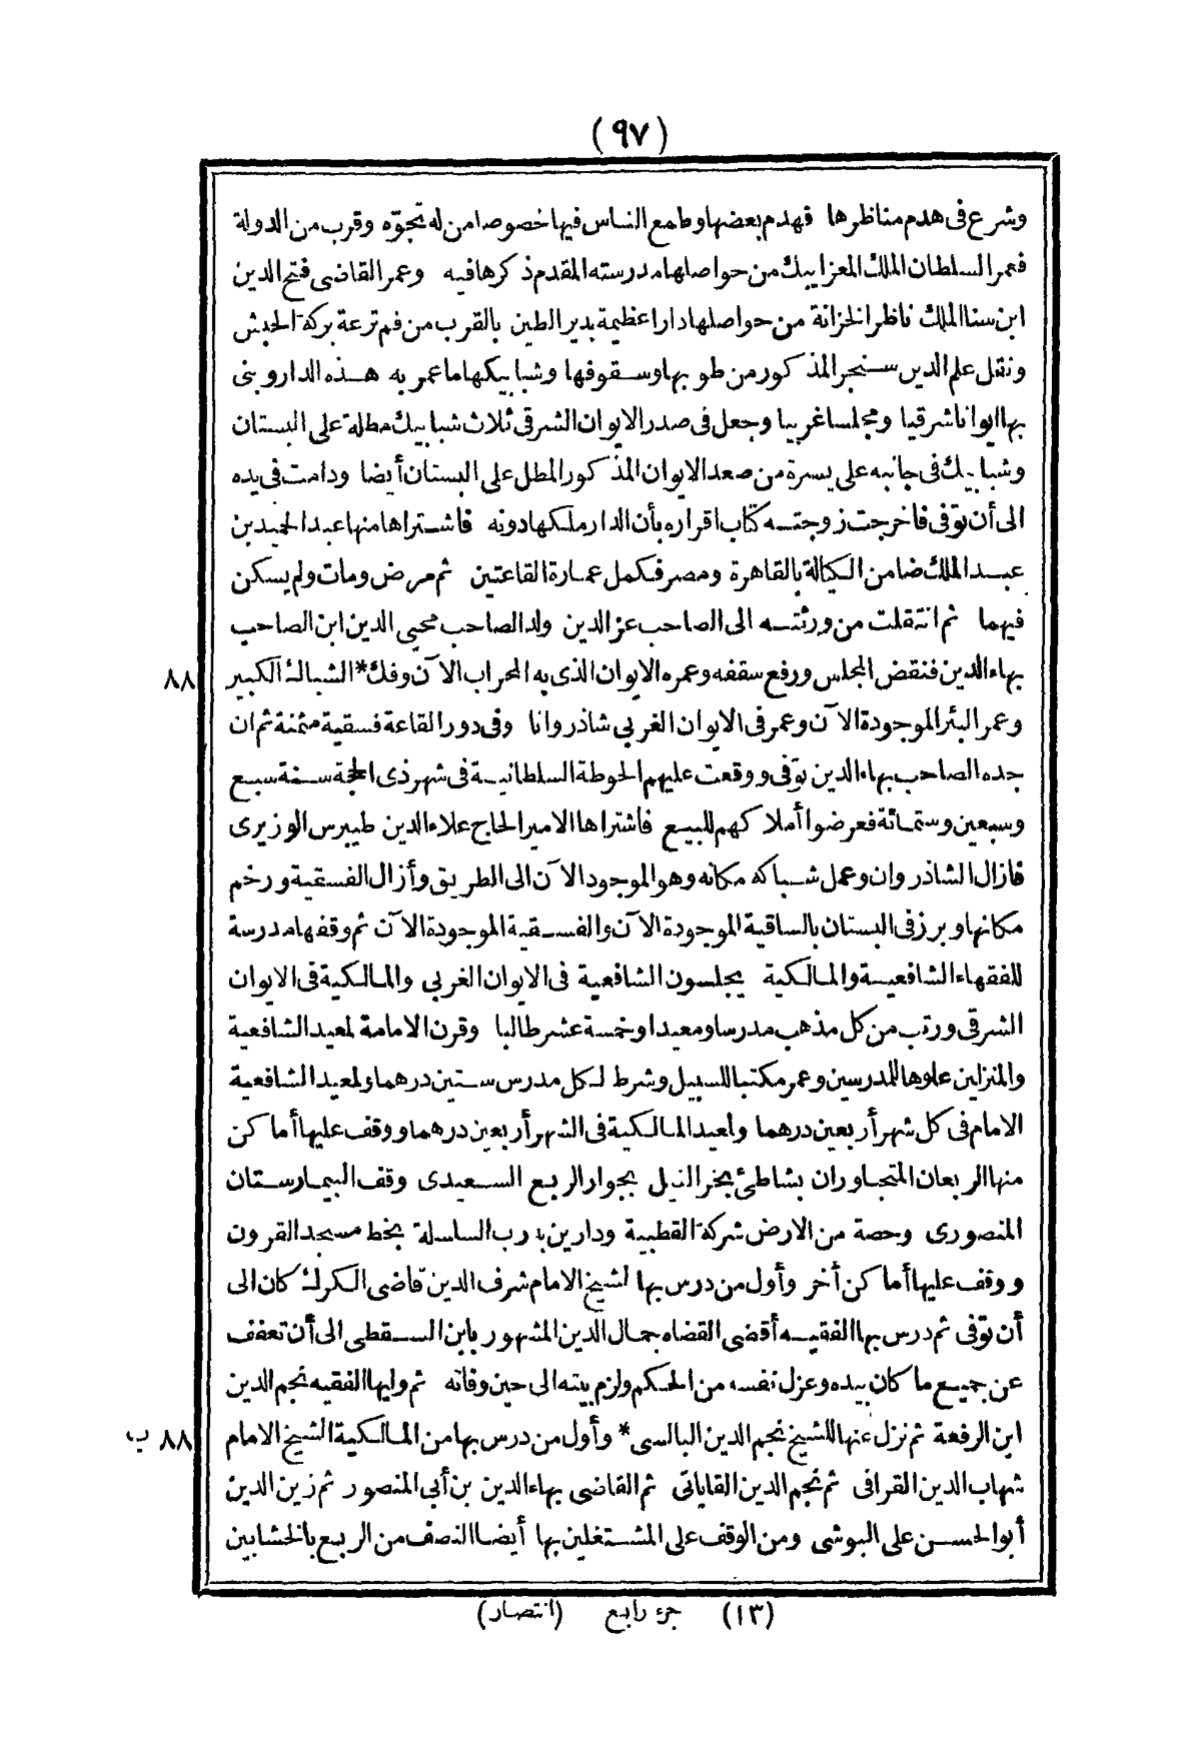 (٩٧)
وشرع فى هدم مناظرها فهدم بعضها وطمع الناس فيها خصوصا من له تجوّه وقرب من الدولة
فعمر السلطان الملك المعز ايبك من حواصلها مدرسته المقدم ذكرها فيه وعمر القاضى فتح الدين
ابن سنا الملك ناظر الخزانة من حواصلها دارا عظيمة بدير الطين بالقرب من فم ترعة بركة الحبش
ونقل علم الدين سنجر المذكور من طوبها وسقوفها وشبابيكها ما عمر به هذه الدار وبنى
بها ايوانا شرقيا ومجلسا غربيا وجعل فى صدر الايوان الشرقى ثلاث شبابيك مطلة على البستان
وشبابيك فى جانبه على يسرة من صعد الايوان المذكور المطل على البستان أيضا ودامت فى يده
الى أن توفى فاخرجت زوجته كتاب اقراره بأن الدار ملكها دونه فاشتراها منها عبد الحميد بن
عبد الملك ضامن الكيالة بالقاهرة ومصر فكمل عمارة القاعتين ثم مرض ومات ولم يسكن
فيهما ثم انتقلت من ورثته الى الصاحب عز الدين ولد الصاحب محيى الدين ابن الصاحب
بهاء الدين فنقض المجلس ورفع سقفه وعمره الايوان الذى به المحراب الآن وفك* الشباك الكبير ٨٨
وعمر البئر الموجودة الآن وعمر فى الايوان الغربى شاذروانا وفى دور القاعة فسقية مثمنة ثم ان
جده الصاحب بهاء الدين توفى ووقعت عليهم الحوطة السلطانية فى شهر ذى الحجة سنة سبع
وسبعين وستمائة فعرضوا أملاكهم للبيع فاشتراها الامير الحاج علاء الدين طيبرس الوزيرى
فازال الشاذروان وعمل شباكه مكانه وهو الموجود الآن الى الطريق وأزال الفسقية ورخم
مكانها وبرز فى البستان بالساقية الموجودة الآن والفسقية الموجودة الآن ثم وقفها مدرسة
للفقهاء الشافعية والمالكية يجلسون الشافعية فى الايوان الغربى والمالكية فى الايوان
الشرقى ورتب من كل مذهب مدرسا ومعيدا وخمسة عشر طالبا وقرن الامامة لمعيد الشافعية
والمنزلين علوها للمدرسين وعمر مكتبا للسبيل وشرط لكل مدرس ستين درهما ولمعيد الشافعية
الامام فى كل شهر أربعين درهما ولمعيد المالكية فى الشهر أربعين درهما ووقف عليها أماكن
منها الربعان المتجاوران بشاطئ بحر النيل بجوار الربع السعيدى وقف البيمارستان
المنصورى وحصة من الارض شركة القطبية ودارين بدرب السلسلة بخط مسجد القرون
ووقف عليها أماكن أخر وأول من درس بها الشيخ الامام شرف الدين قاضى الكرك كان الى
أن توفى ثم درس بها الفقيه أقضى القضاه جمال الدين المشهور بابن السقطى الى أن تعفف
عن جميع ما كان بيده وعزل نفسه من الحكم ولزم بيته الى حين وفاته ثم وليها الفقيه نجم الدين
ابن الرفعة ثم نزل عنها للشيخ نجم الدين البالسى* وأول من درس بها من المالكية الشيخ الامام ٨٨ ب
شهاب الدين القرافى ثم نجم الدين القاياتى ثم القاضى بهاء الدين بن أبى المنصور ثم زين الدين
أبو الحسن على البوشى ومن الوقف على المشتغلين بها أيضا النصف من الربع بالخشابين
(١٣) جزء رابع (انتصار)